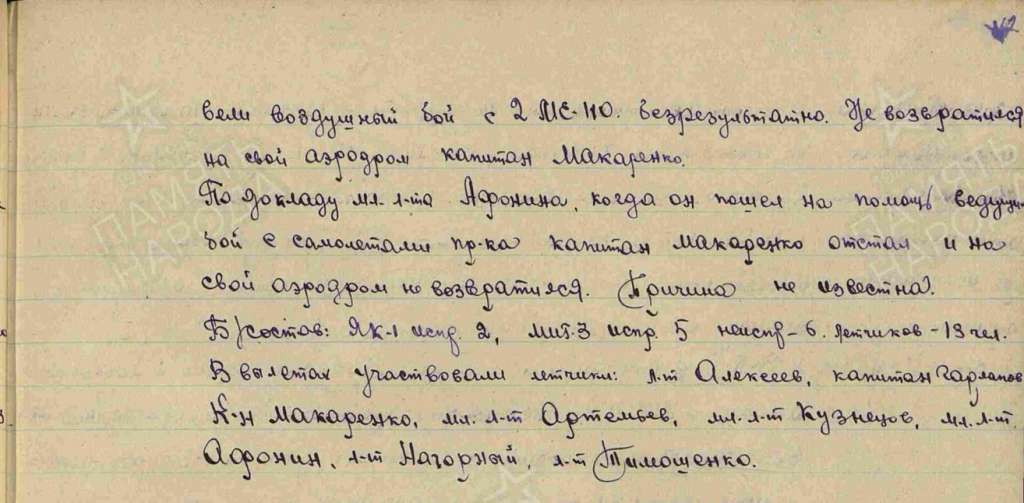 вели воздушный бой с 2 МЕ-110. безрезультатно. Не возвратился
на свой аэродром капитан Макаренко.
По докладу мл. л-та Афонина, когда он пошел на помощь ведущим
бой с самолетами пр-ка капитан Макаренко отстал и на
свой аэродром не возвратился. Причина не известна.
Б/состав: Як-1 испр. 2, МИГ-3 испр. 5 неиспр - 6. летчиков - 13 чел.
В вылетах участвовали летчики: л-т Алексеев, капитан Гарлапов
К-н Макаренко, мл. л-т Артемьев, мл. л-т Кузнецов, мл. л-т.
Афонин, л-т Нагорный, л-т Тимошенко.
ПАМЯТЬ НАРОДА
ПАМЯТЬ НАРОДА